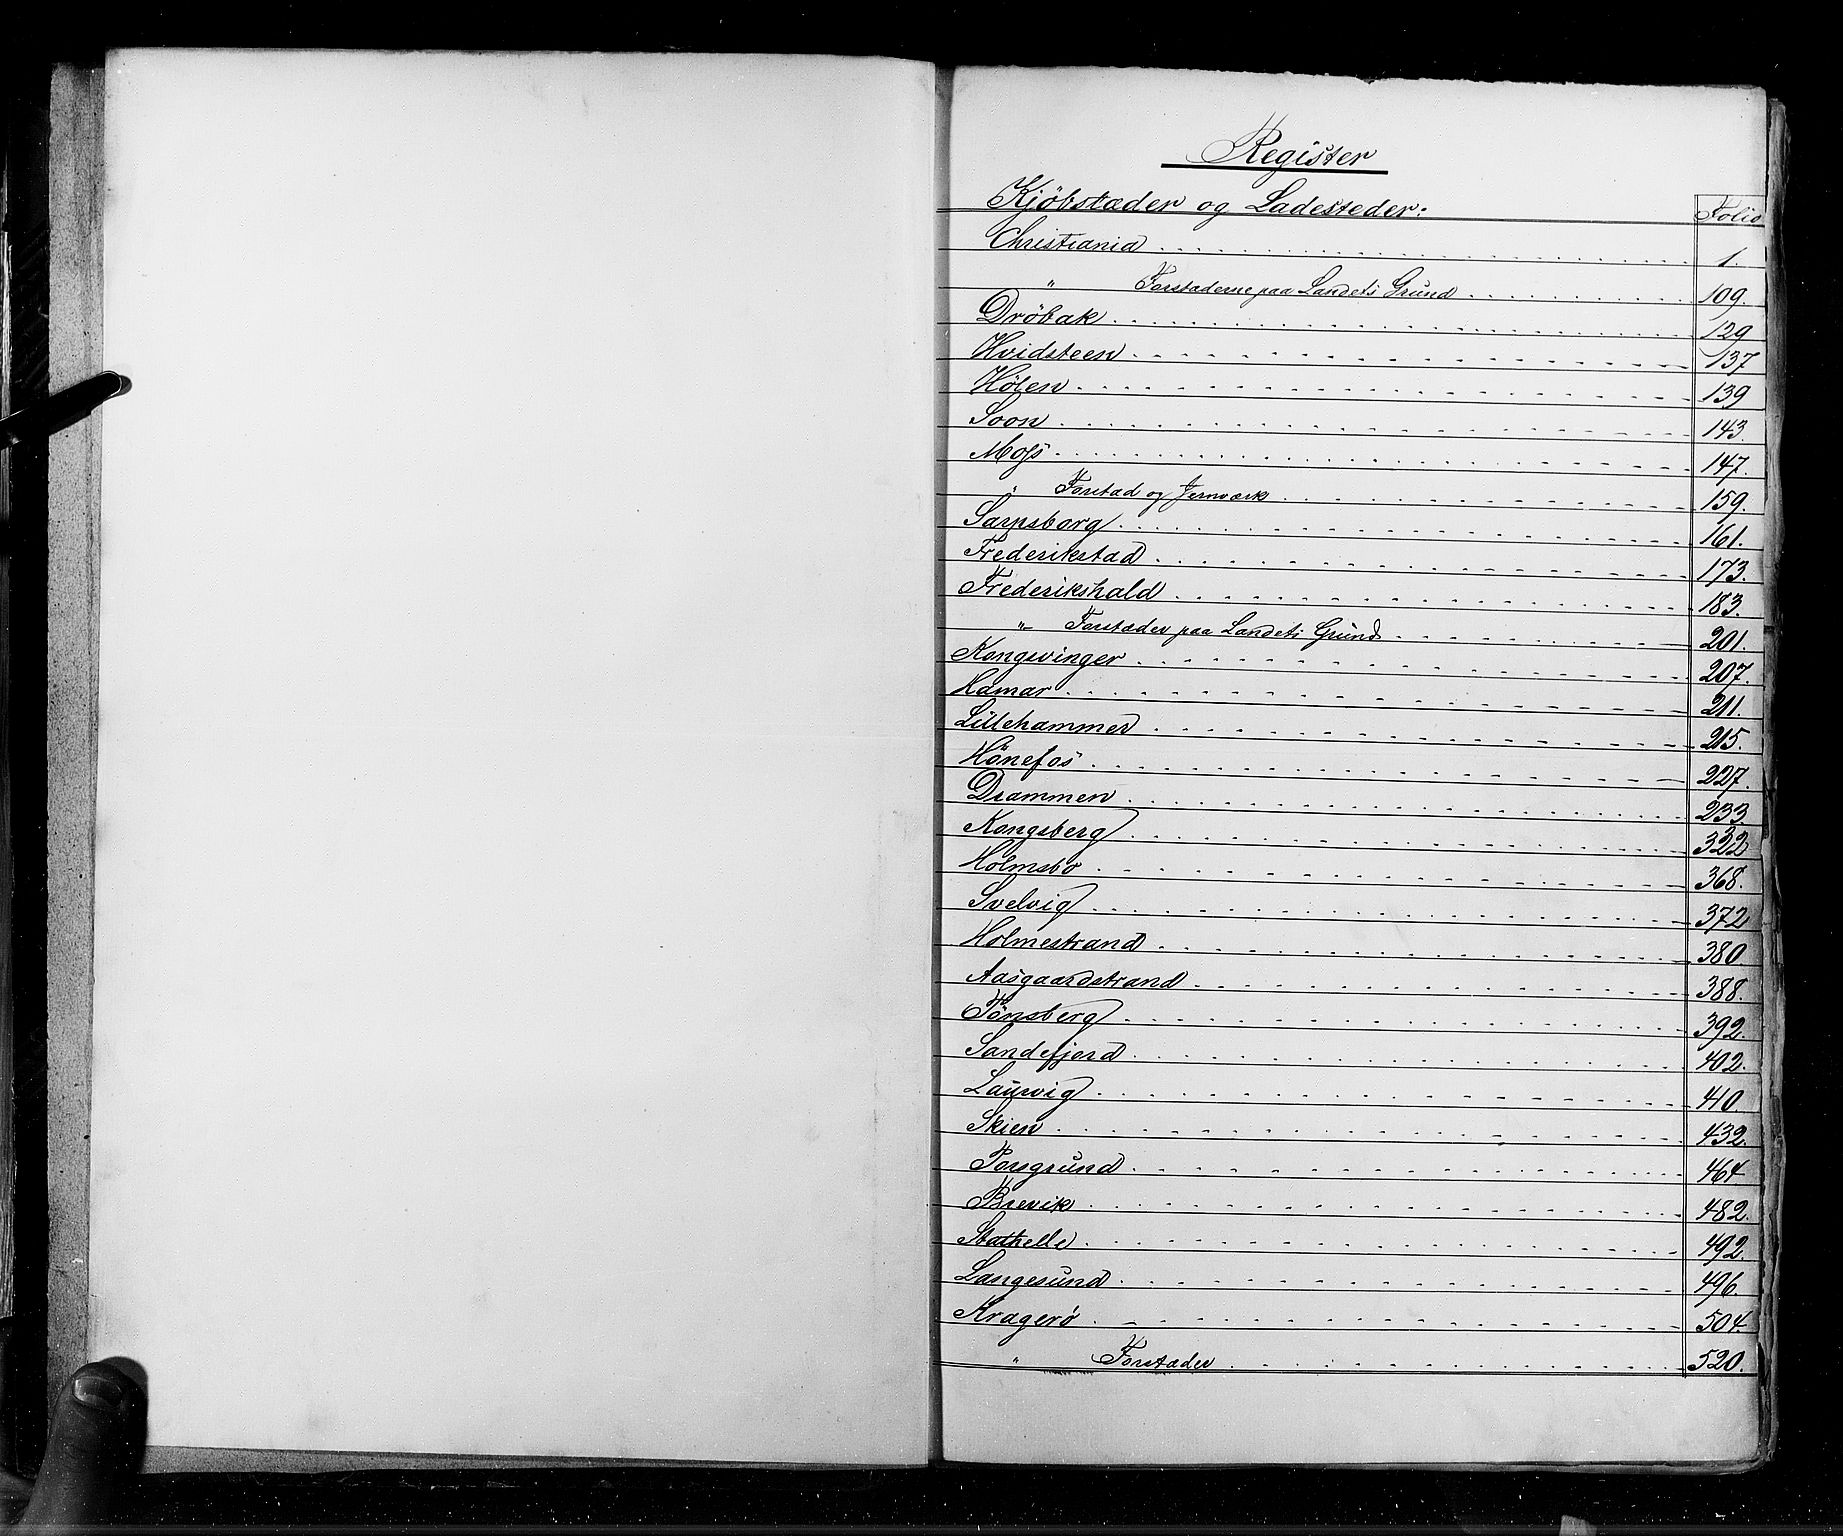 Register
Kjöbstæder og Ladesteder: Folio
Christiania 1.
" Forstæderne paa Landets Grund 109.
Dröbak 129
Hvidsteen 137
Hölen 139
Soon 143.
Moss 147.
" Forstad og Jernværk 159.
Sarpsborg 161.
Frederikstad 173.
Frederikshald 183.
" Forstæder paa Landets Grund 201.
Kongsvinger 207.
Hamar 211.
Lillehammer 215.
Hönefos 227.
Drammen 233.
Kongsberg 322
Holmsbo 368.
Svelvig 372
Holmestrand 380.
Aasgaardstrand 388.
Tönsberg 392.
Sandefjord 402.
Laurvig 410.
Skien 432.
Porsgrund 464
Brevik 482.
Stathelle 492.
Langesund 496.
Kragerö 504.
" Forstæder 520.